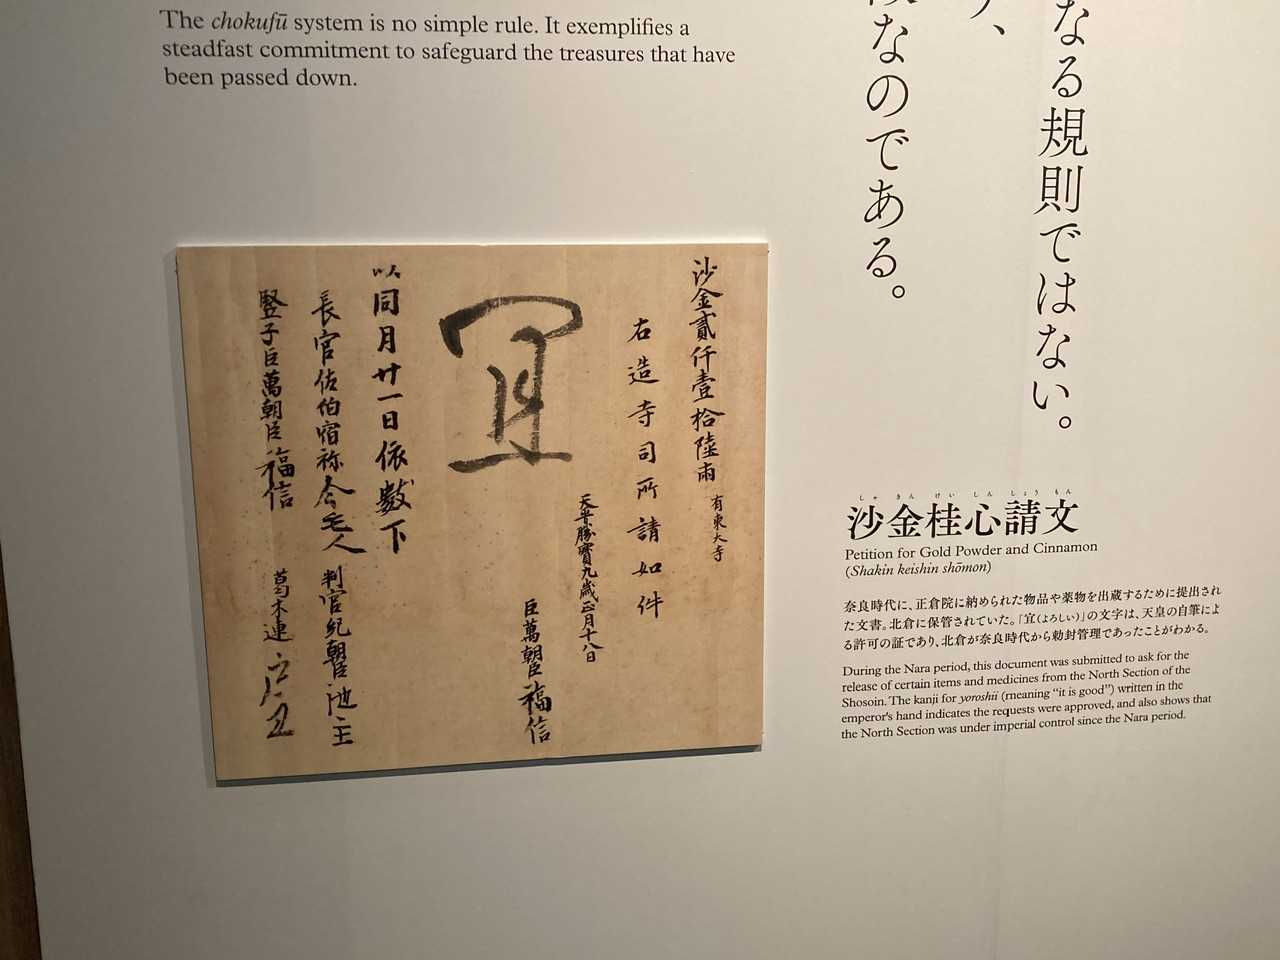 The chokufū system is no simple rule. It exemplifies a
steadfast commitment to safeguard the treasures that have
been passed down.
なる規則ではない。
なのである。
沙金貳仟壹拾陸兩 有東大寺
右造寺司所請如件
天平勝寳九歳正月十八日
巨萬朝臣福信
宜
以同月廿一日依數下
長官佐伯宿祢今毛人 判官紀朝臣池主
竪子巨萬朝臣福信 葛木連戸主
しゃきんけいしんしょうもん
沙金桂心請文
Petition for Gold Powder and Cinnamon
(Shakin keishin shōmon)
奈良時代に、正倉院に納められた物品や薬物を出蔵するために提出され
た文書。北倉に保管されていた。「宜(よろしい)」の文字は、天皇の自筆によ
る許可の証であり、北倉が奈良時代から勅封管理であったことがわかる。
During the Nara period, this document was submitted to ask for the
release of certain items and medicines from the North Section of the
Shosoin. The kanji for yoroshii (meaning “it is good”) written in the
emperor's hand indicates the requests were approved, and also shows that
the North Section was under imperial control since the Nara period.